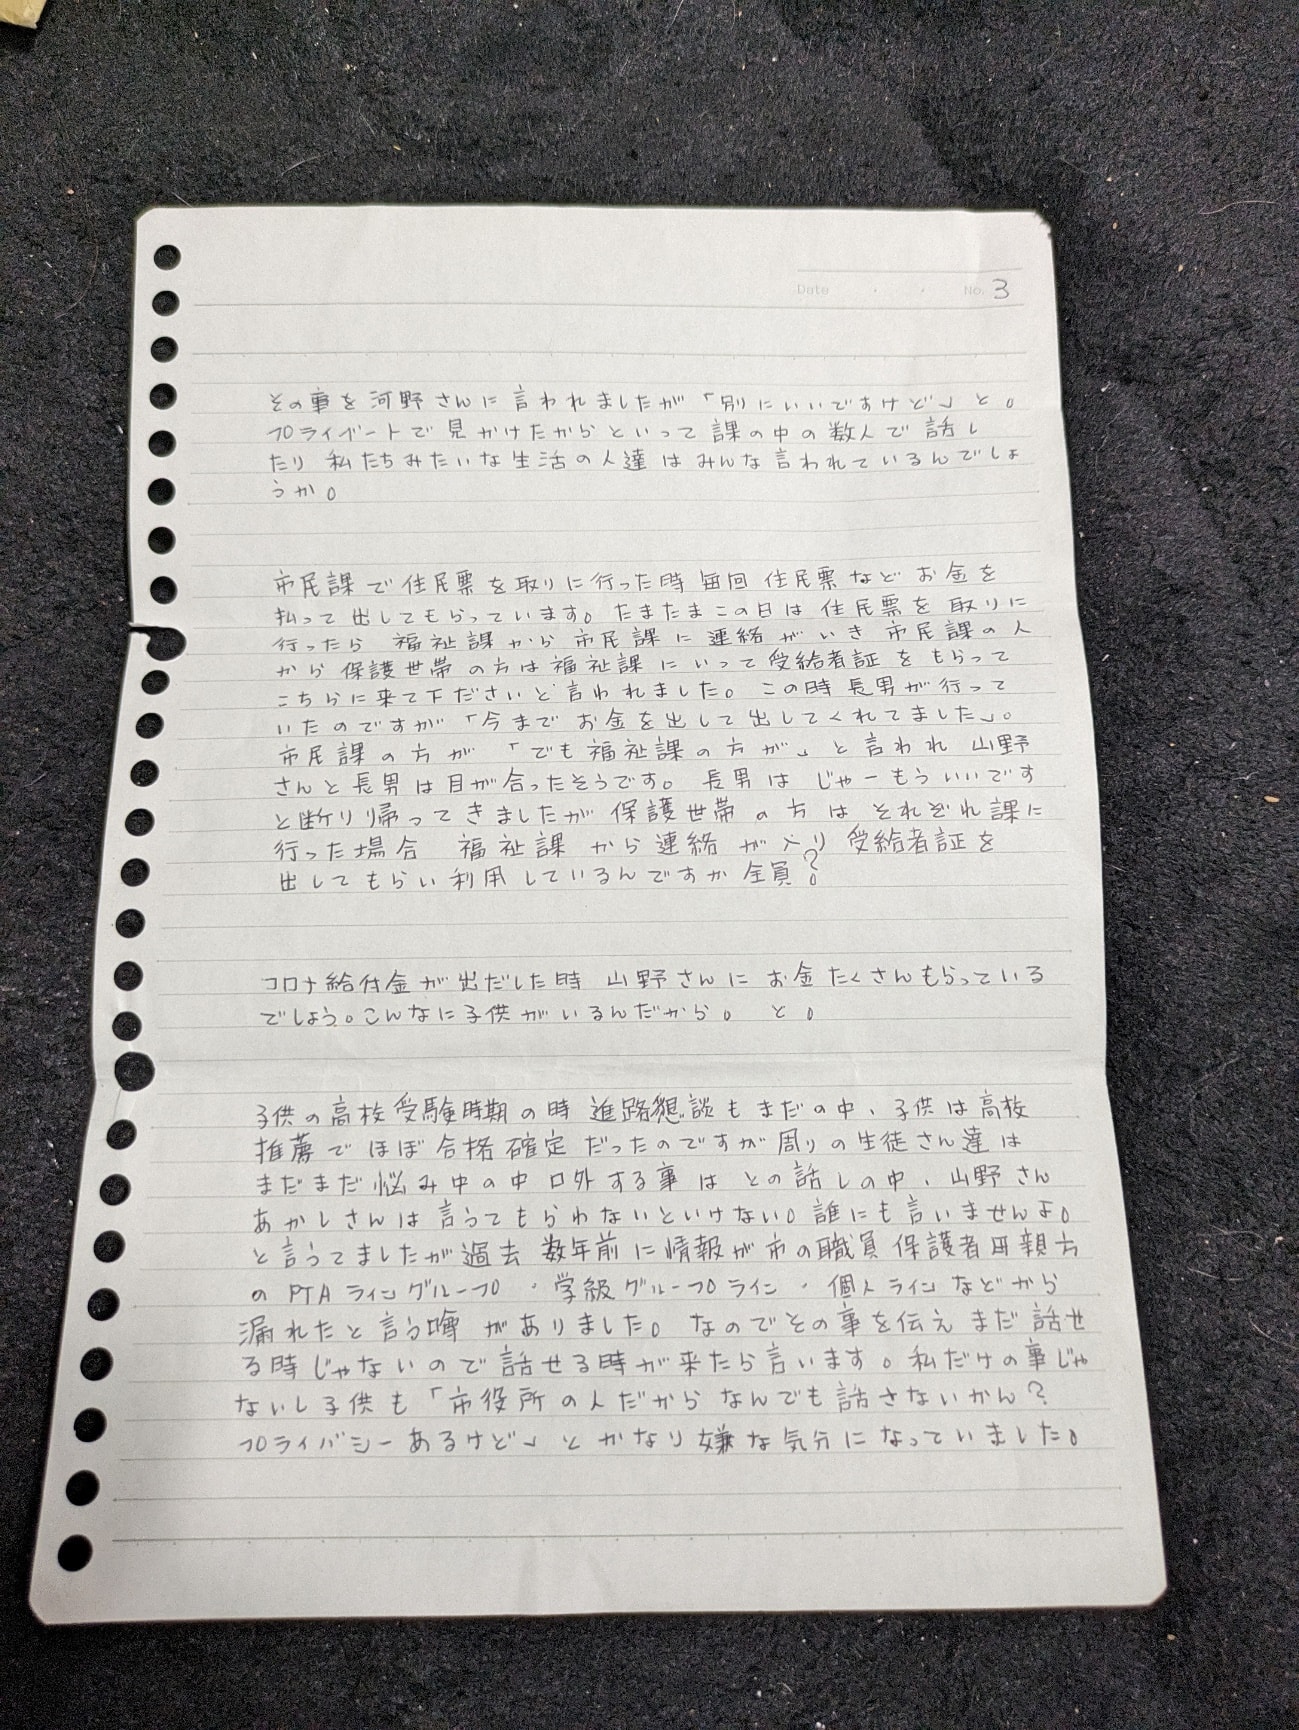 Date ・ ・ No. 3
その事を河野さんに言われましたが「別にいいですけど」と。
プライベートで見かけたからといって課の中の数人で話し
たり私たちみたいな生活の人達はみんな言われているんでしょ
うか。
市民課で住民票を取りに行った時毎回住民票などお金を
払って出してもらっています。たまたまこの日は住民票を取りに
行ったら福祉課から市民課に連絡がいき市民課の人
から保護世帯の方は福祉課にいって受給者証をもらって
こちらに来て下ださいと言われました。この時長男が行って
いたのですが「今までお金を出して出してくれてました」。
市民課の方が「でも福祉課の方が」と言われ山野
さんと長男は目が合ったそうです。長男はじゃーもういいです
と断り帰ってきましたが保護世帯の方はそれぞれ課に
行った場合福祉課から連絡が入り受給者証を
出してもらい利用しているんですか全員?
コロナ給付金が出だした時山野さんにお金たくさんもらっている
でしょう。こんなに子供がいるんだから。と。
子供の高校受験時期の時進路懇談もまだの中、子供は高校
推薦でほぼ合格確定だったのですが周りの生徒さん達は
まだまだ悩み中の中口外する事はとの話しの中、山野さん
あかしさんは言うてもらわないといけない。誰にも言いませんよ。
と言うてましたが過去数年前に情報が市の職員保護者母親方
のPTAライングループ・学級グループライン・個人ラインなどから
漏れたと言う噂がありました。なのでその事を伝えまだ話せ
る時じゃないので話せる時が来たら言います。私だけの事じゃ
ないし子供も「市役所の人だからなんでも話さないかん?
プライバシーあるけど」とかなり嫌な気分になっていました。